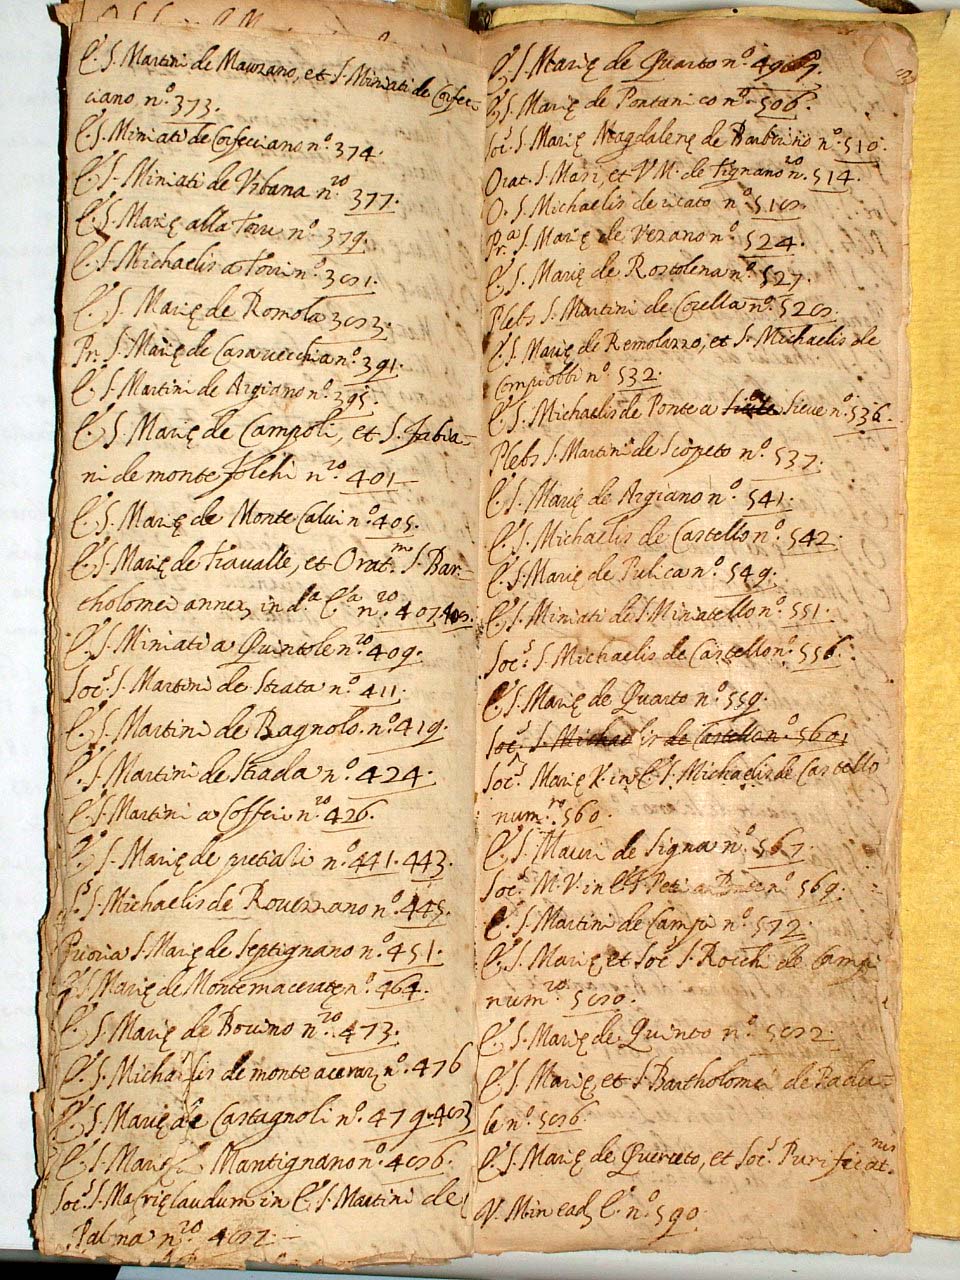 E. S. Martini de Manzano, et S. Miniati de Corfec-
ciano, n.º 373.
E. S. Miniati de Corfecciano n.º 374.
E. S. Miniati de Vibana n.ro 377.
E. S. Marię alla Torre n.º 379.
E. S. Michaelis a Torri n.º 381.
E. S. Marię de Romola 383.
Pr. S. Marię de Casavecchia n.º 391.
E. S. Martini de Argiano n.º 395.
E. S. Marię de Campoli, et S. Fabia-
ni de monte folchi n.ro 401
E. S. Marię de Monte Calvi n.º 405.
E. S. Marię de Travalle, et Orat.mo S. Bar-
tholomei annex. in d.ª E.ª n.ro 407. 408.
E. S. Miniati a Quintole n.ro 409.
Soc.s S. Martini de Strata n.º 411.
E. S. Martini de Bagnolo. n.º 419.
E. S. Martini de Strada n.º 424.
E. S. Martini a Cofferi n.ro 426.
E. S. Marię de pretiali n.º 441. 443.
S. Michaelis de Rovezzano n.º 445.
Prioria S. Marię de Septignano n.º 451.
E. S. Marię de Montemacerate n.º 464.
E. S. Marię de Bovino n.ro 473.
E. S. Michaelis de monte acerari n.º 476
E. S. Marię de Castagnoli n.º 479. 483
E. S. Marię Mantignano n.º 486.
Soc.s S. Marię laudum in E. S. Martini de
Palma n.ro 487
E. S. Marię de Quarto n.º
E. S. Marię de Pontanico n.º 506.
Soc.s S. Marię Magdalenę de Barbrino n.º 510.
Orat. S. Mari, et V. M. de Tignano n.ro 514.
O. S. Michaelis de n.º 518.
Pr.ª S. Marię de Vezano n.º 524.
E. S. Marię de Rostolena n.º 527.
Plebs S. Martini de Corella n.º 528.
E. S. Marię de Remolazzo, et S. Michaelis de
Compiobbi n.º 532.
E. S. Michaelis de Ponte a Sieve n.º 536.
Plebs S. Martini de Scopeto n.º 537.
E. S. Marię de Argiano n.º 541.
E. S. Michaelis de Castello n.º 542.
E. S. Marię de Pulica n.º 549.
E. S. Miniati de S. Miniatello n.º 551.
Soc.s S. Michaelis de Castello n.º 556.
E. S. Marię de Quarto n.º 559.
Soc.s S. Michaelis de Castello n.º 560.
Soc.s Marię V. in E. S. Michaelis de Castello
num.ro 560.
E. S. Mauri de Signa n.º 567.
Soc.s M. V. in E. S. Petri a n.º 569.
E. S. Martini de Campi n.º 572
E. S. Marię et Soc.s S. Rocchi de Campi
num.ro 580.
E. S. Marię de Quinto n.º 582.
E. S. Marię, et S. Bartholomei de Padu-
le n.º 586.
E. S. Marię de Querceto, et Soc.s Purificat.nis
V. M. in ead. E. n.º 590.